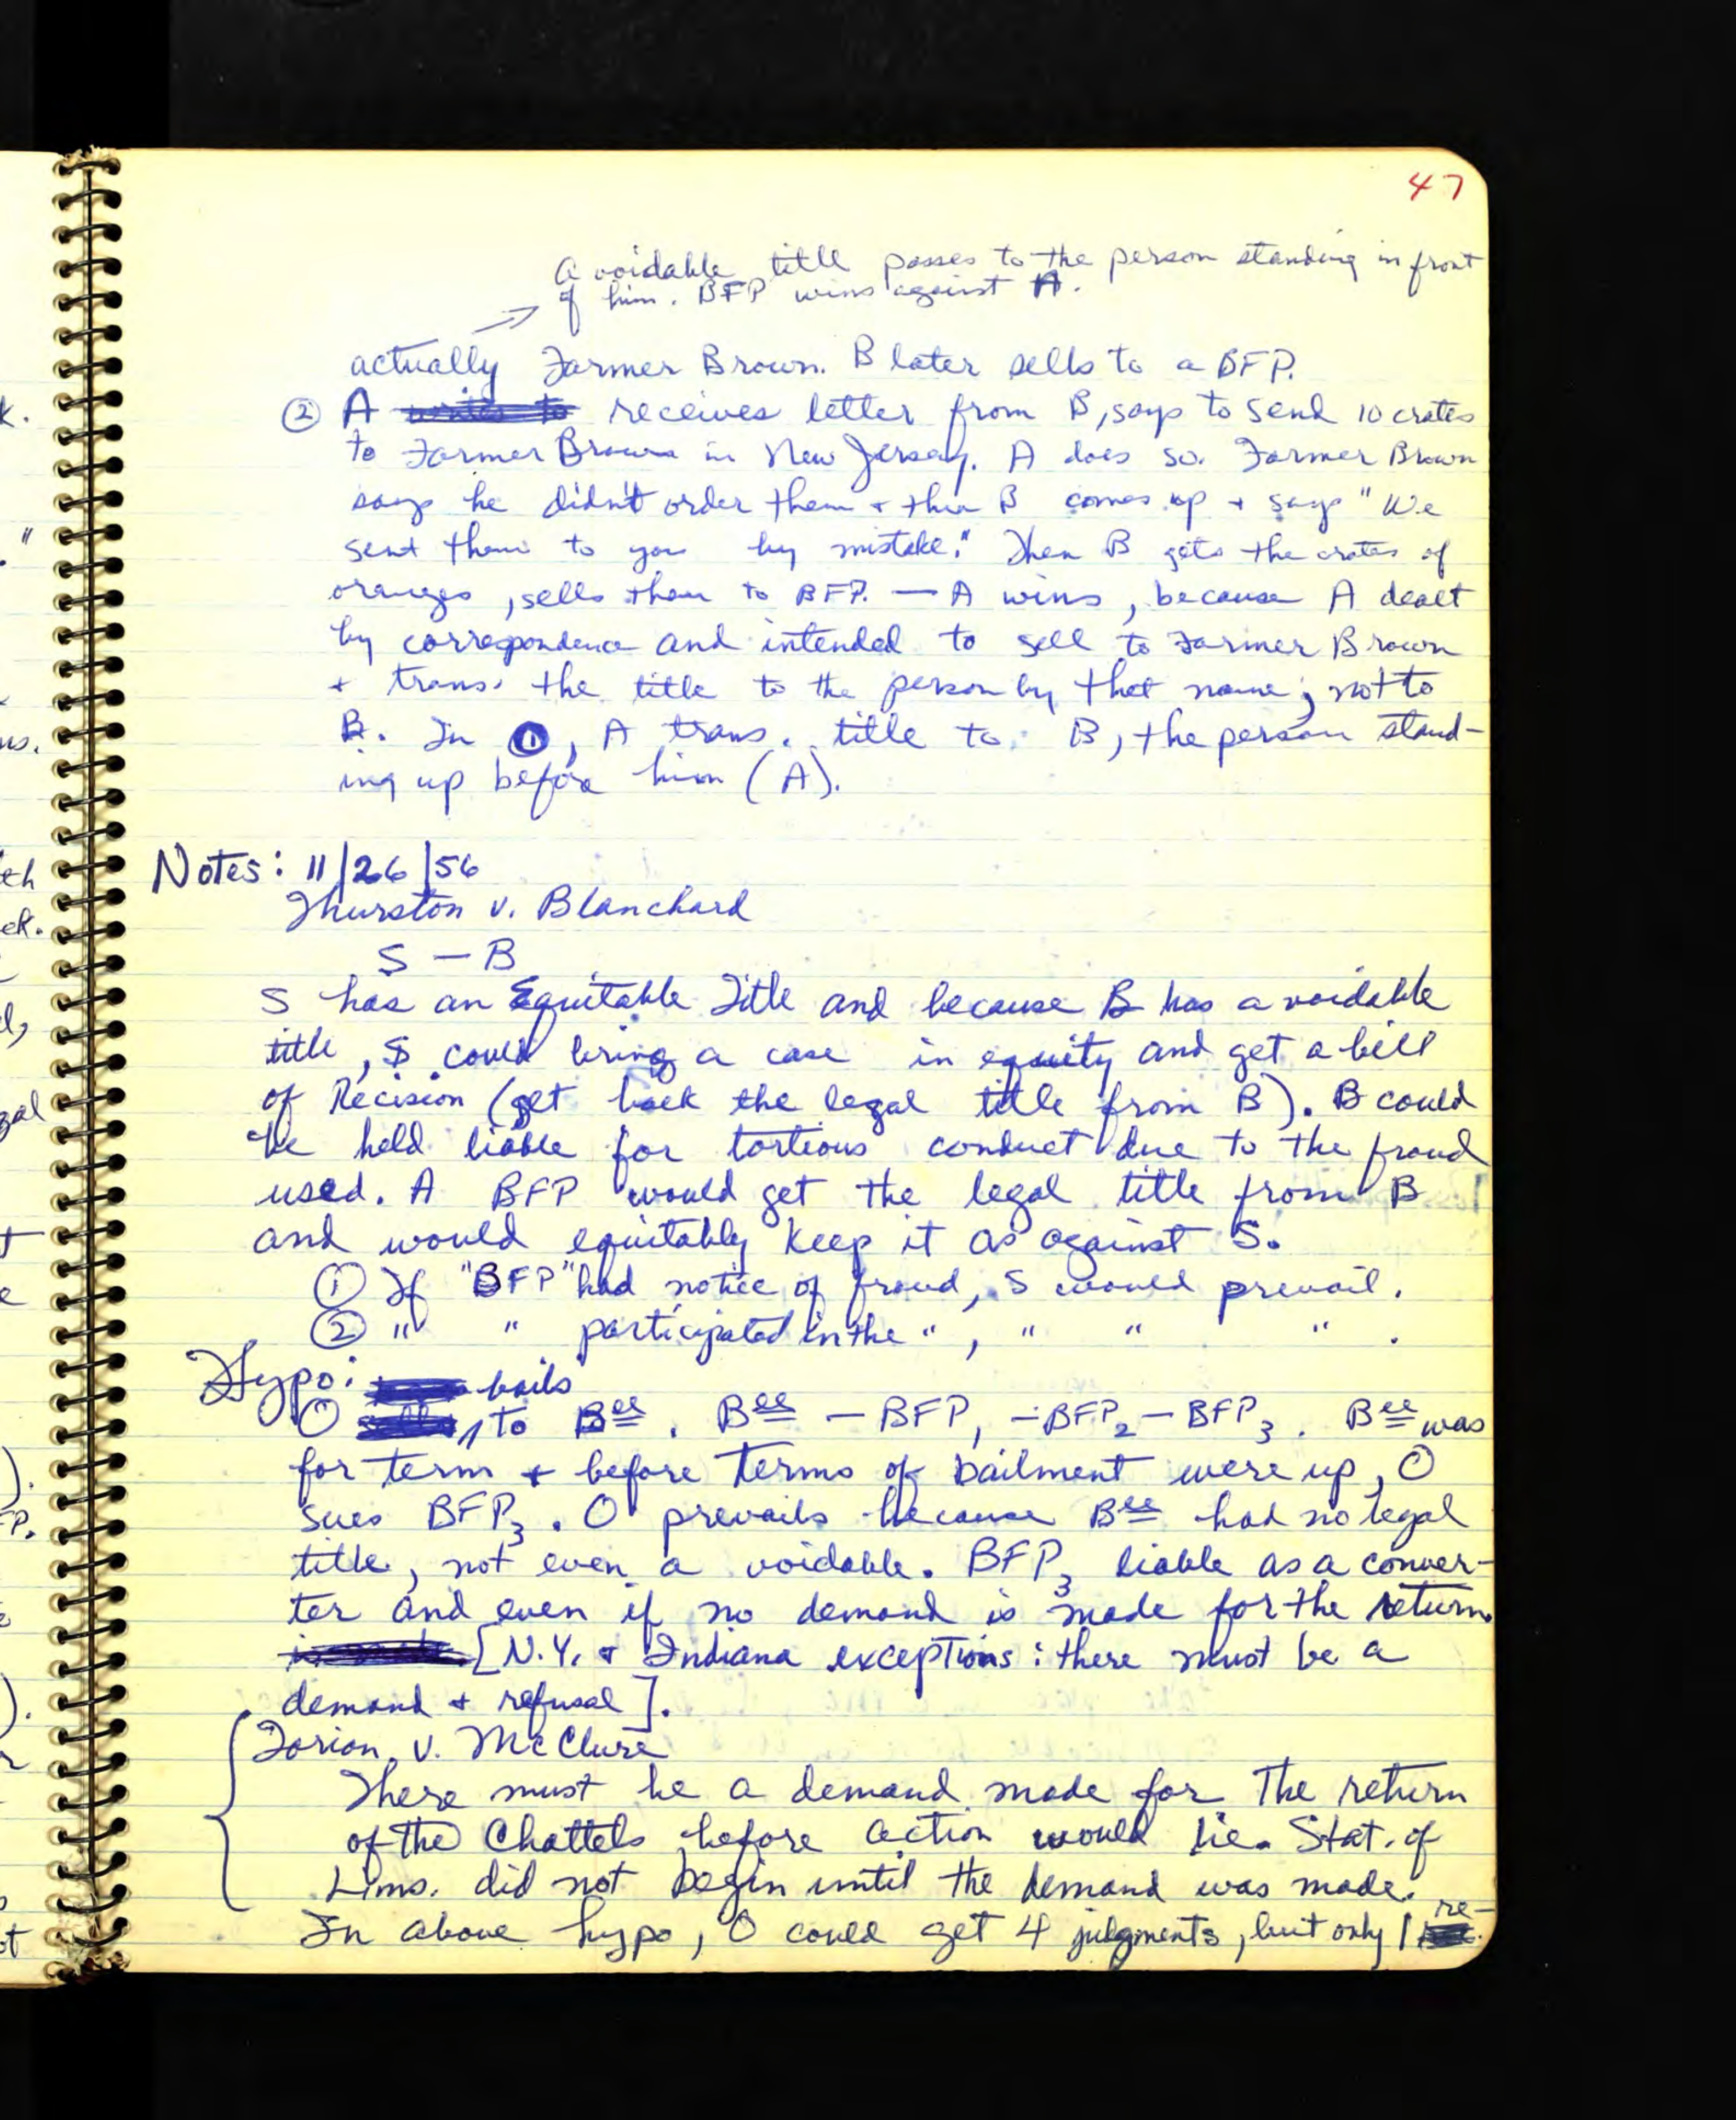 47
A voidable title passes to the person standing in front
of him. BFP wins against A.
actually Farmer Brown. B later sells to a BFP.
② A receives letter from B, says to send 10 crates
to Farmer Brown in New Jersey. A does so. Farmer Brown
says he didn't order them + then B comes up + says "We
sent them to you by mistake." Then B gets the crates of
oranges, sells them to BFP. — A wins, because A dealt
by correspondence and intended to sell to Farmer Brown
+ trans. the title to the person by that name; not to
B. In ①, A trans. title to B, the person stand-
ing up before him (A).
Notes: 11/26/56
Thurston v. Blanchard
S — B
S has an Equitable Title and because B has a voidable
title, S could bring a case in equity and get a bill
of Recision (get back the legal title from B). B could
be held liable for tortious conduct due to the fraud
used. A BFP would get the legal title from B
and would equitably keep it as against S.
① If "BFP" had notice of fraud, S would prevail.
② " " participated in the ", " " " .
Hypo: bails
O to Bee. Bee — BFP, — BFP2 — BFP3. Bee was
for term + before terms of bailment were up, O
sues BFP3. O prevails because Bee had no legal
title, not even a voidable. BFP3 liable as a conver-
ter and even if no demand is made for the return
[N.Y. & Indiana exceptions: there must be a
demand + refusal].
Torian v. McClure
There must be a demand made for The return
of the Chattels before action would lie. Stat. of
Lims. did not begin until the demand was made.
In above hypo, O could get 4 judgments, but only 1 re-